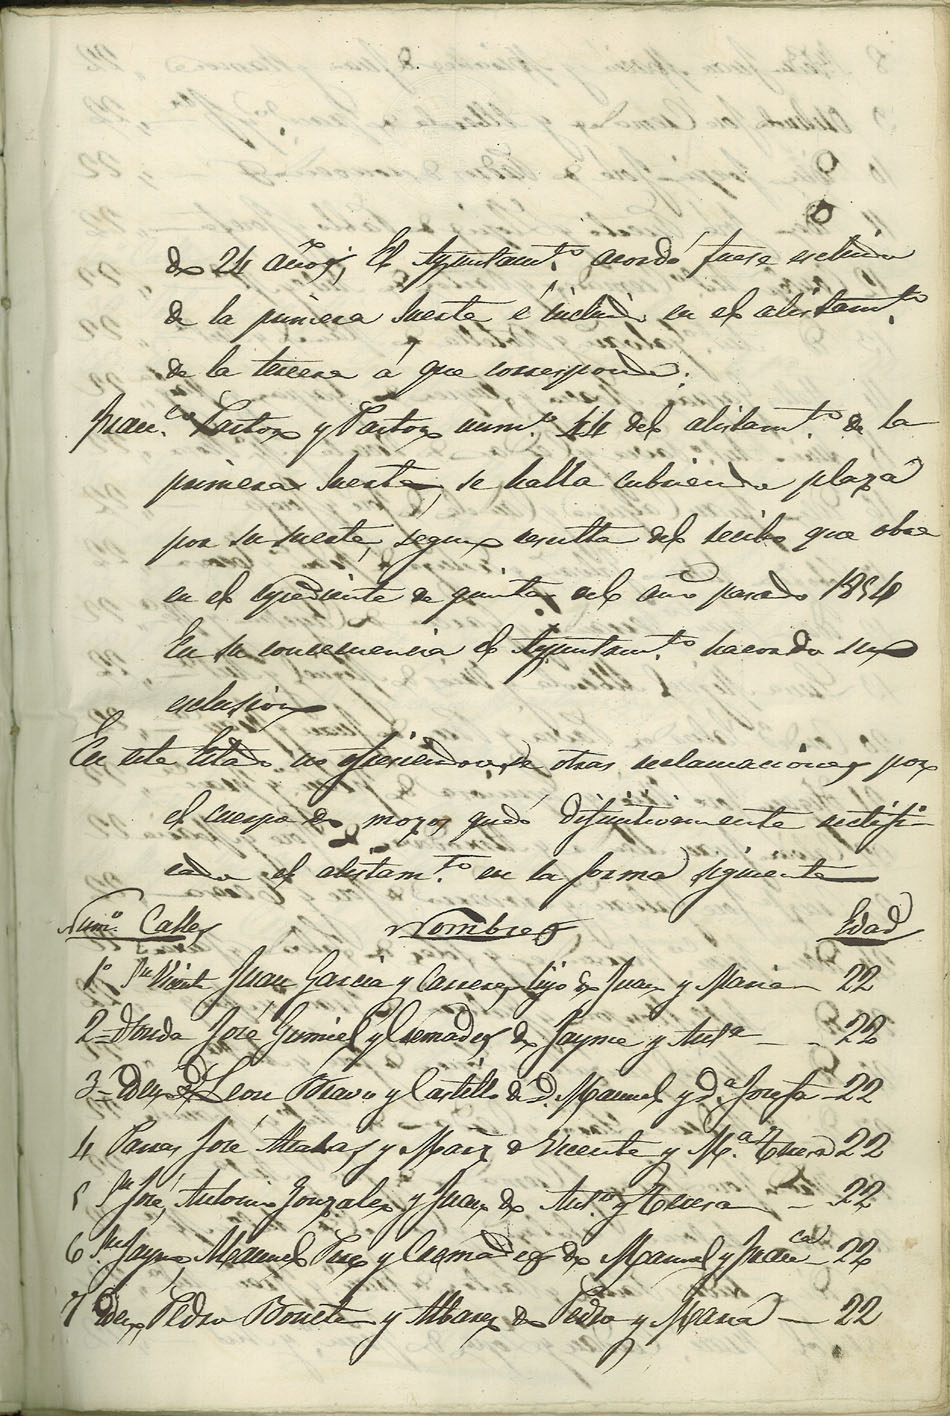 de 24 años, El Ayuntamto. acordó fuese escluido
de la primera suerte é incluido en el alistamto.
de la tercera á que corresponde.
Franco. Pastor y Pastor numo. 44 del alistamto. de la
primera suerte, se halla cubriendo plaza
por su suerte, segun resulta del recibo que obra
en el Expediente de quintas del año pasado 1854
En su consecuencia el Ayuntamto. acordó su
esclusion
En este Estado no ofreciendose otras reclamaciones por
el cuerpo de mozos quedó difinitivamente rectifi-
cado el alistamto. en la forma siguiente
Numo. Calles Nombres Edad
1o Sn Vicente Juan Garcia y Carreres hijo de Juan y Maria 22
2 José Gumiel y Cremades de Jayme y Anta 22
3 Idem Dn Leon Bravo y Castillo de D. Manuel y Da. Josefa 22
4 José y Maiz de Vicente y Ma. Teresa 22
5 Sn José, Antonio Gonzalez y Juan de Anto. y Teresa 22
6 Sn Jayme, Manuel y Cremades de Manuel y Franca 22
7 Idem, Pedro Boneta y Albarez de Pedro y Maria 22